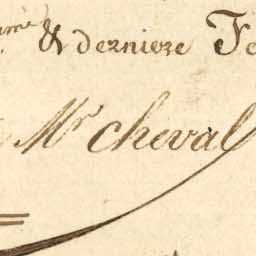 & derniere Fe
Mr cheval